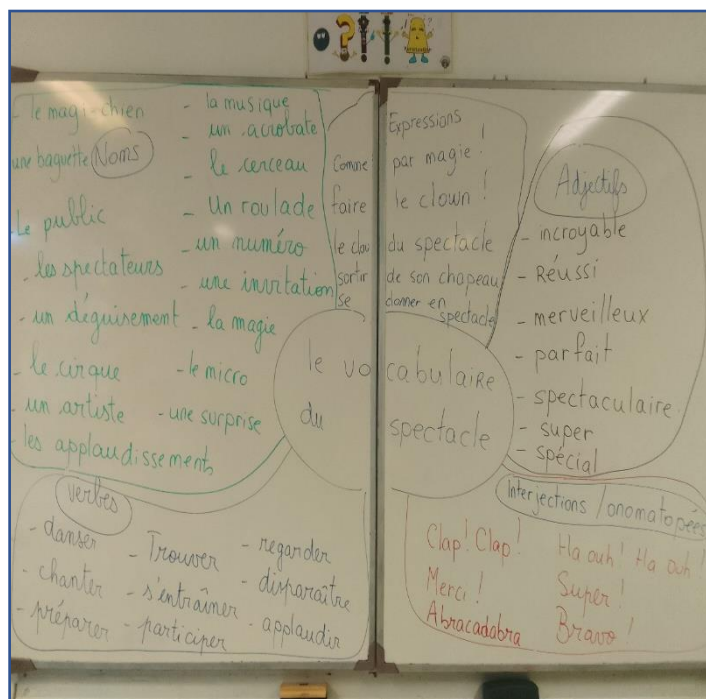 - le magi-chien
une baguette Noms
Le public
- les spectateurs
- un déguisement
- le cirque
- un artiste
- les applaudissements
- la musique
- un acrobate
- le cerceau
- Un roulade
- un numéro
- une invitation
- la magie
- le micro
- une surprise
Expressions
Comme par magie !
faire le clown !
le clou du spectacle
sortir de son chapeau
se donner en spectacle
Adjectifs
- incroyable
- Réussi
- merveilleux
- parfait
- spectaculaire
- super
- spécial
le vocabulaire
du spectacle
verbes
- danser
- chanter
- préparer
- Trouver
- s'entraîner
- participer
- regarder
- disparaître
- applaudir
Interjections / onomatopées
Clap ! Clap !
Merci !
Abracadabra
Ha ouh ! Ha ouh !
Super !
Bravo !